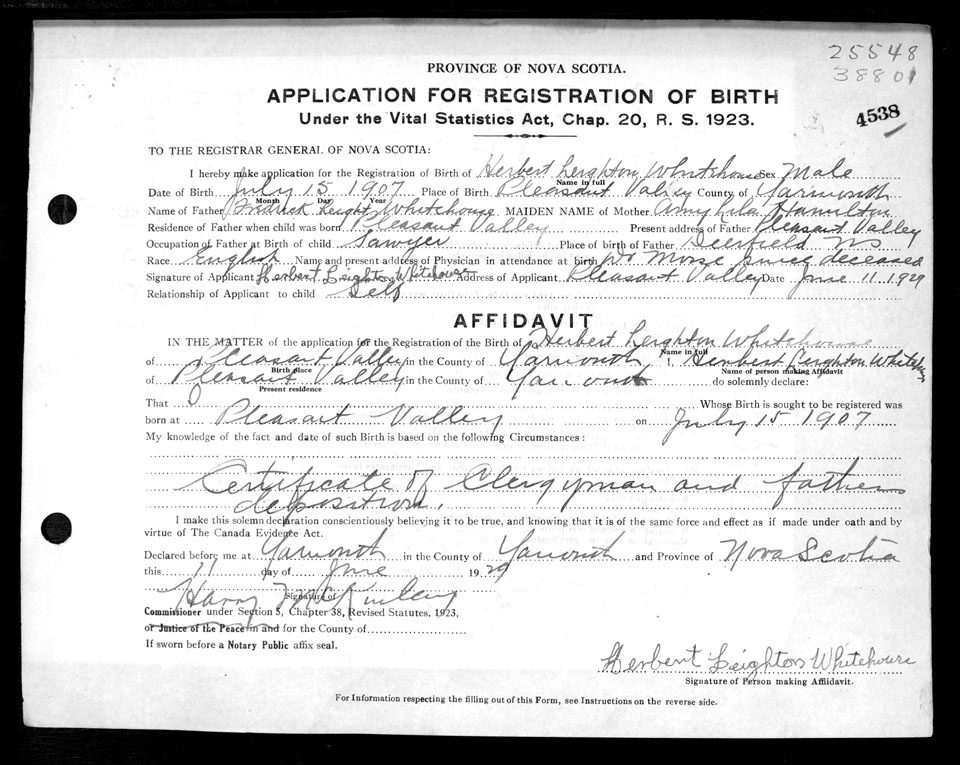 25548
38801
4538
PROVINCE OF NOVA SCOTIA.
APPLICATION FOR REGISTRATION OF BIRTH
Under the Vital Statistics Act, Chap. 20, R. S. 1923.
TO THE REGISTRAR GENERAL OF NOVA SCOTIA:
I hereby make application for the Registration of Birth of Herbert Leighton Whitehouse Sex Male
Name in full
Date of Birth July 15 1907 Place of Birth Pleasant Valley County of Yarmouth
Month Day Year
Name of Father Fredrick Leighton Whitehouse MAIDEN NAME of Mother Amy Lila Hamilton
Residence of Father when child was born Pleasant Valley Present address of Father Pleasant Valley
Occupation of Father at Birth of child Sawyer Place of birth of Father Deerfield NS
Race English Name and present address of Physician in attendance at birth Dr Morse since deceased
Signature of Applicant Herbert Leighton Whitehouse Address of Applicant Pleasant Valley Date June 11 1929
Relationship of Applicant to child Self
AFFIDAVIT
IN THE MATTER of the application for the Registration of the Birth of Herbert Leighton Whitehouse
Name in full
of Pleasant Valley in the County of Yarmouth I, Herbert Leighton Whitehouse
Birth place Name of person making Affidavit
of Pleasant Valley in the County of Yarmouth do solemnly declare:
Present residence
That Whose Birth is sought to be registered was
born at Pleasant Valley on July 15 1907
My knowledge of the fact and date of such Birth is based on the following Circumstances:
Certificate of Clergyman and fathers
deposition.
I make this solemn declaration conscientiously believing it to be true, and knowing that it is of the same force and effect as if made under oath and by
virtue of The Canada Evidence Act.
Declared before me at Yarmouth in the County of Yarmouth and Province of Nova Scotia
this 11 day of June 1929
Harry McKinley
Signature of
Commissioner under Section 5, Chapter 38, Revised Statutes, 1923,
or Justice of the Peace in and for the County of
If sworn before a Notary Public affix seal.
Herbert Leighton Whitehouse
Signature of Person making Affidavit.
For Information respecting the filling out of this Form, see Instructions on the reverse side.